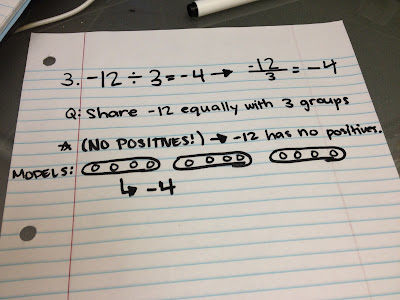 3. -12 ÷ 3 = -4 → -12/3 = -4
Q: Share -12 equally with 3 groups
☆ (NO POSITIVES!) → -12 has no positives.
MODELS: 0000 0000 0000
↳ -4